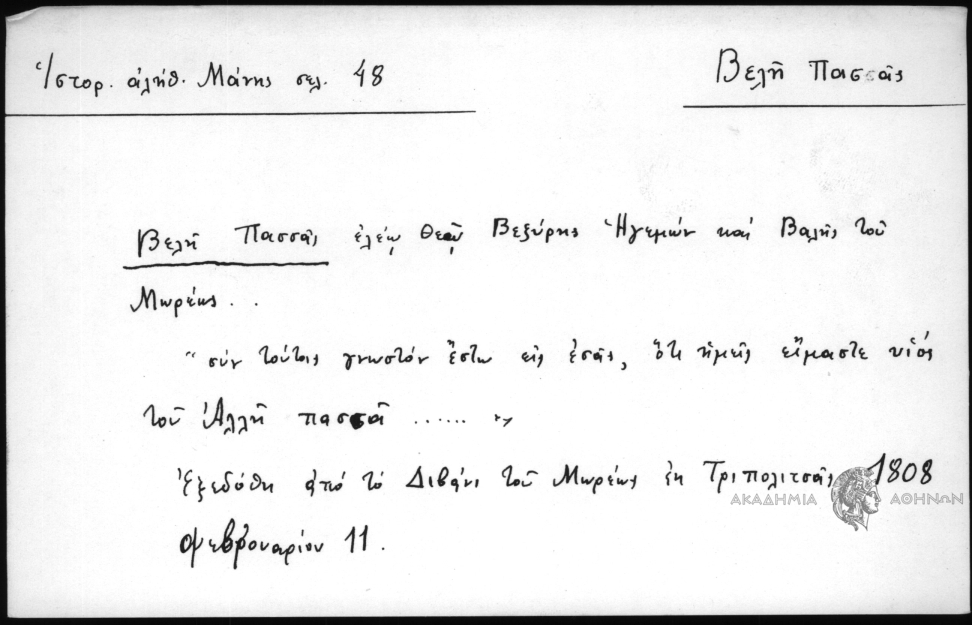 Ἱστορ. ἀληθ. Μάνης σελ. 48
Βελῆ Πασσᾶς
Βελῆ Πασσᾶς ἐλέῳ Θεοῦ Βεζύρης Ἡγεμών καί Βαλῆς τοῦ
Μωρέως . .
" σύν τούτοις γνωστόν ἔστω εἰς ἐσᾶς, ὅτι ἡμεῖς εἴμαστε υἱός
τοῦ Ἀλλῆ πασσᾶ ...... "
Ἐξεδόθη ἀπό τό Διβάνι τοῦ Μωρέως ἐκ Τριπολιτσᾶς 1808
Φεβρουαρίου 11.
ΑΚΑΔΗΜΙΑ ΑΘΗΝΩΝ